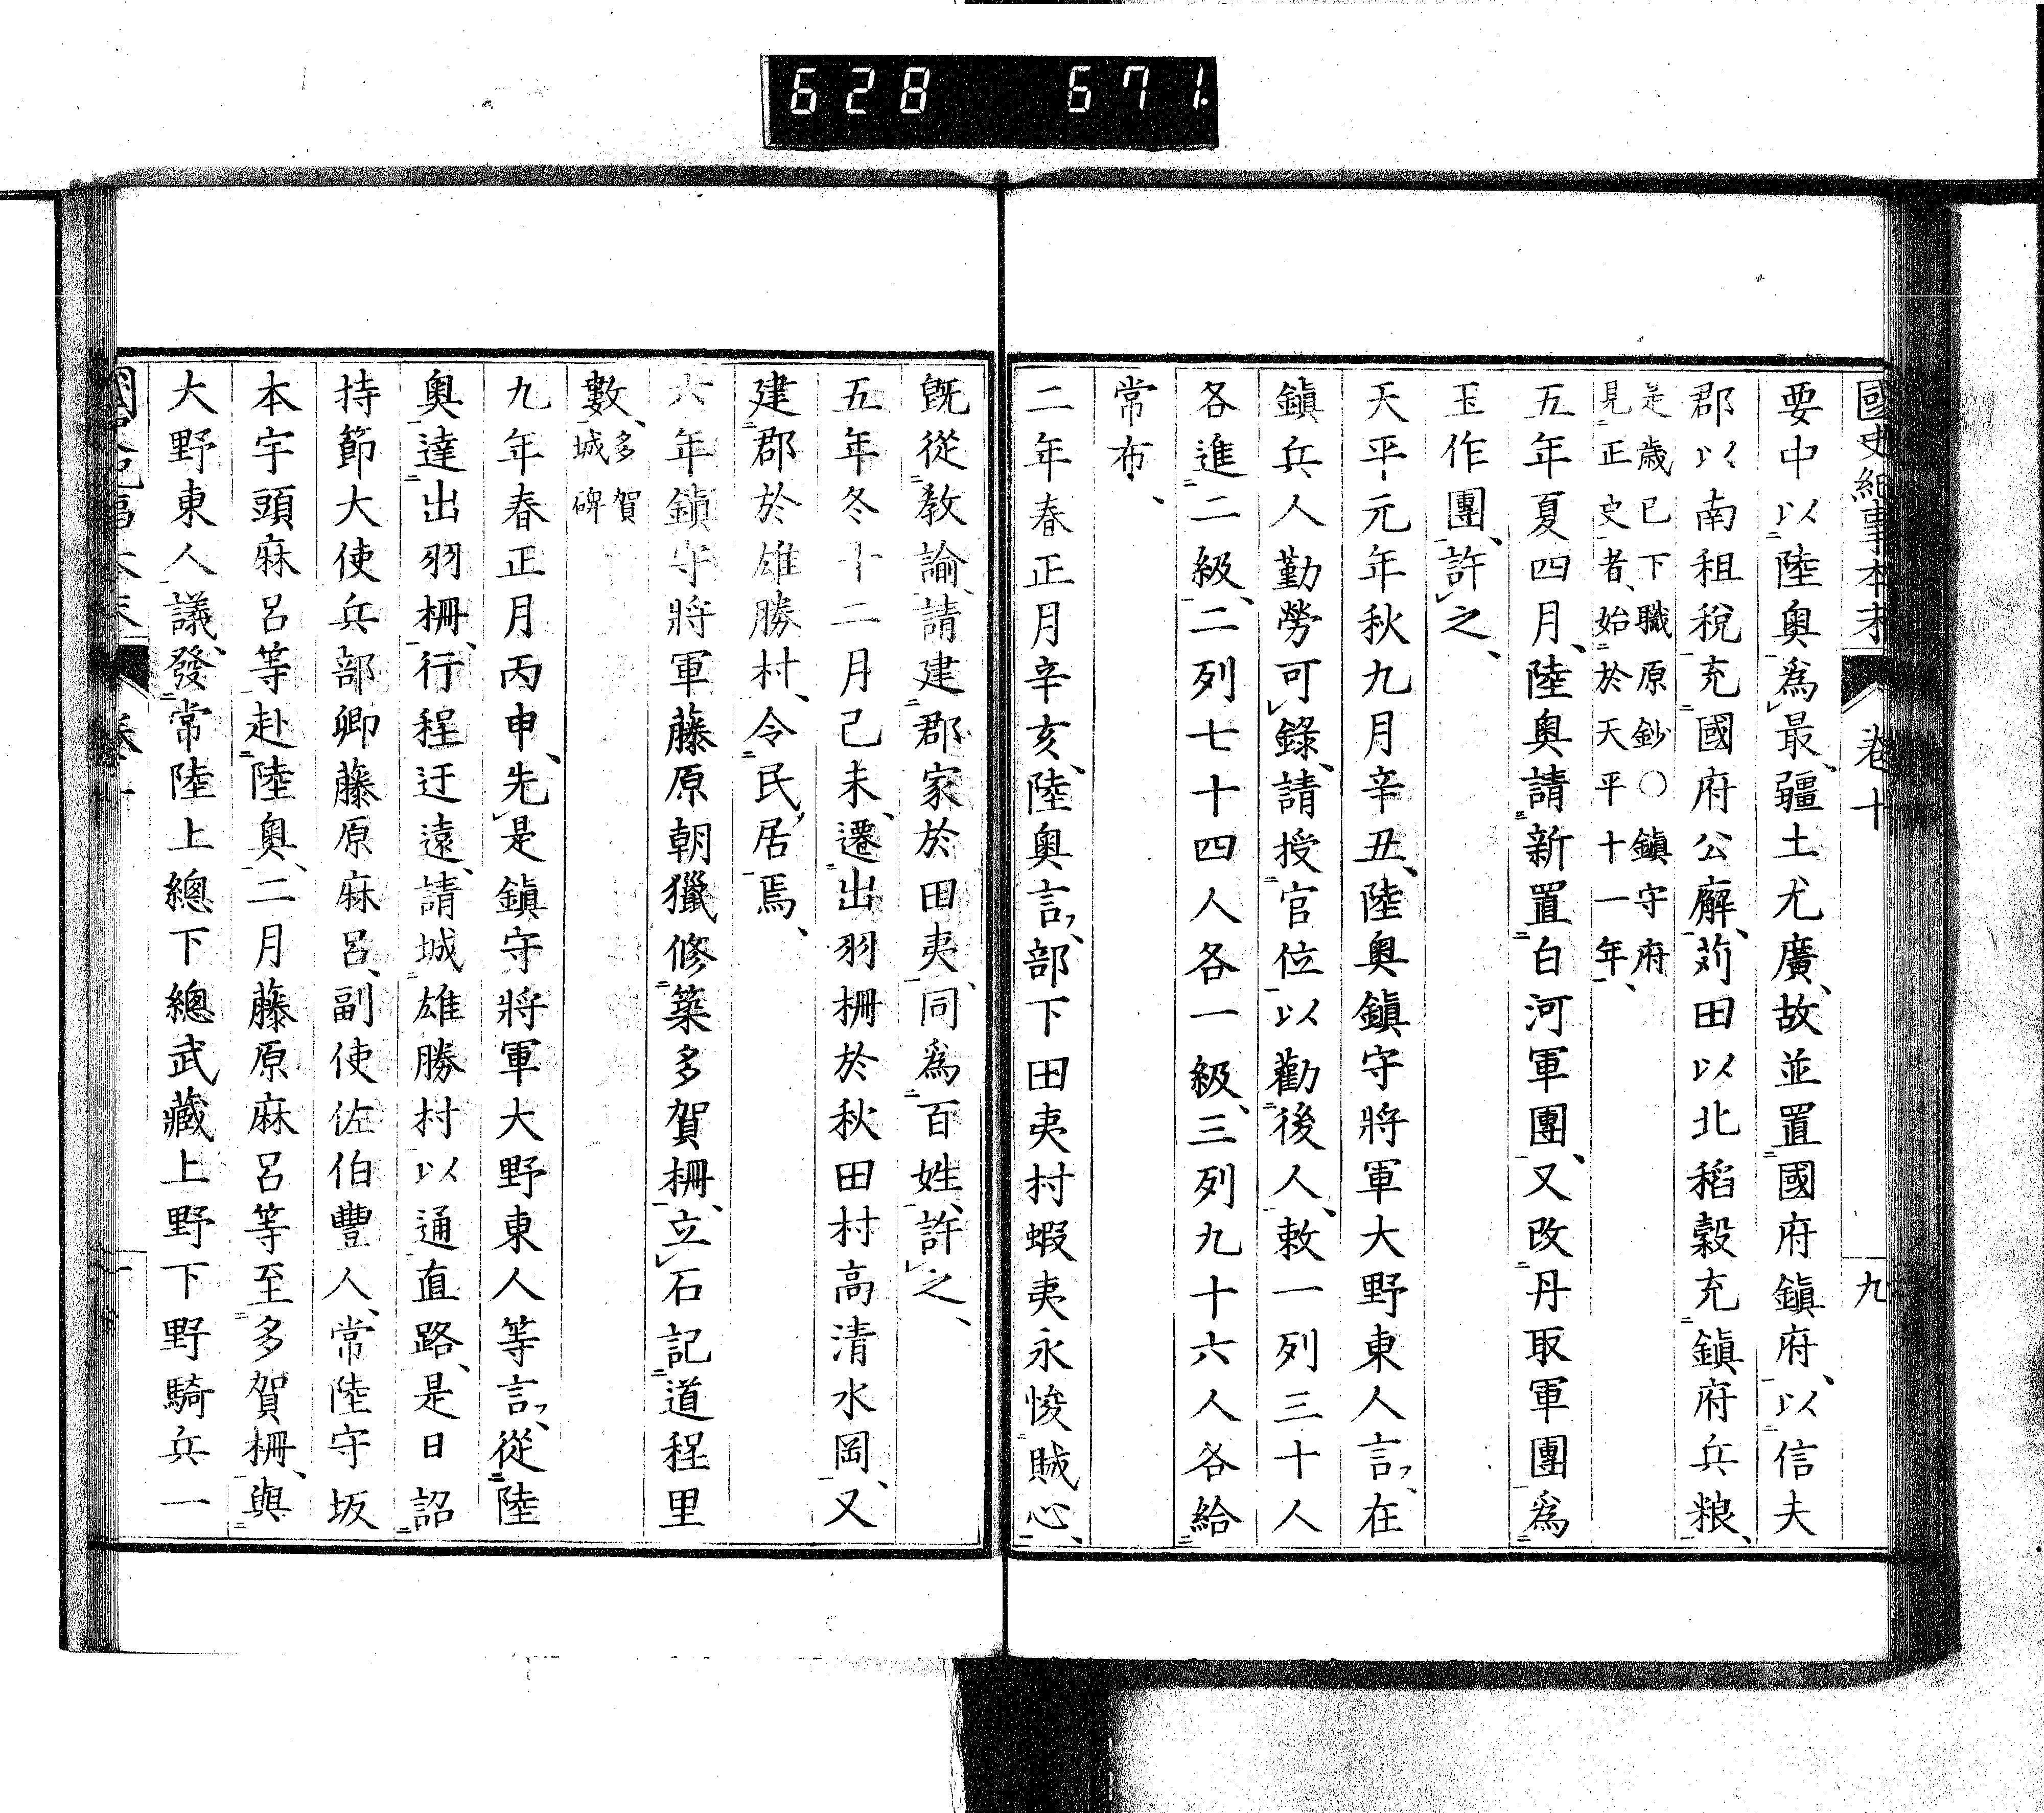 628 671.
國史紀事本末 卷十 九
要中以陸奧爲最、疆土尤廣、故並置國府鎭府、以信夫
郡以南租稅充國府公廨、苅田以北稻穀充鎭府兵粮、
是歲已下職原鈔○鎭守府
見正史者、始於天平十一年、
五年夏四月、陸奧請新置白河軍團、又改丹取軍團爲
玉作團、許之、
天平元年秋九月辛丑、陸奧鎭守將軍大野東人言、在
鎭兵人勤勞可錄、請授官位以勸後人、敕一列三十人
各進二級、二列七十四人各一級、三列九十六人各給
常布、
二年春正月辛亥、陸奧言、部下田夷村蝦夷永悛賊心、
旣從敎諭、請建郡家於田夷、同爲百姓、許之、
五年冬十二月己未、遷出羽柵於秋田村高清水岡、又
建郡於雄勝村、令民居焉、
六年鎭守將軍藤原朝獵修築多賀柵、立石記道程里
數、多賀
城碑
九年春正月丙申、先是鎭守將軍大野東人等言、從陸
奧達出羽柵、行程迂遠、請城雄勝村以通直路、是日詔
持節大使兵部卿藤原麻呂、副使佐伯豐人、常陸守坂
本宇頭麻呂等赴陸奧、二月藤原麻呂等至多賀柵、與
大野東人議、發常陸上總下總武藏上野下野騎兵一